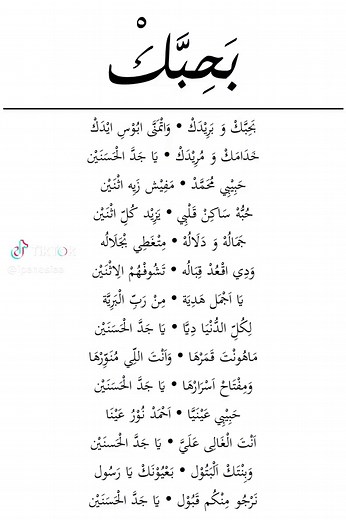 بَحِبَّكْ
بَحِبَّكْ وَ بَرِيْدَكْ • وَاتْمَنَّى ابُوْسِ ايْدَكْ
خَدَامَكْ وُ مُرِيْدَكْ • يَا جَدَّ الْحَسَنَيْن
حَبِيْبِي مُحَمَّدْ • مَفِيْش زَيِه اتْنَيْن
حُبُّهْ سَاكِنْ قَلْبِي • يَزِيْد كُلِّ اثْنَيْن
جَمَالُهْ وَ دَلَالُهْ • مِتْغَطِي بْجَلَالُه
وَدِي اقْعُدْ قِبَالُه • تَشُوفْهُمْ الِاتْنَيْن
يَا اَجْمَل هَدِيَة • مِنْ رَبِّ الْبَرِيَّة
لِكُلِّ الدُّنْيَا دِيَّا • يَا جَدَّ الْحَسَنَيْن
مَاهُونْتَ قَمَرْهَا • وَاَنْتَ اللِّي مْنَوِّرْهَا
وَمِفْتَاحْ اَسْرَارْهَا • يَا جَدَّ الْحَسَنَيْن
حَبِيْبِي عَيْنَيَّا • اَحْمَدْ نُوْرُ عَيْنَا
اَنْتَ الْغَالِى عَلَيَّ • يَا جَدَّ الْحسنَيْن
وَبِنْتَكْ اَلْبَتُوْل • بَعْيُوْنَكْ يَا رَسُول
نَرْجُو مِنْكُم قَبُوْل • يَا جَدَّ الْحَسَنَيْن